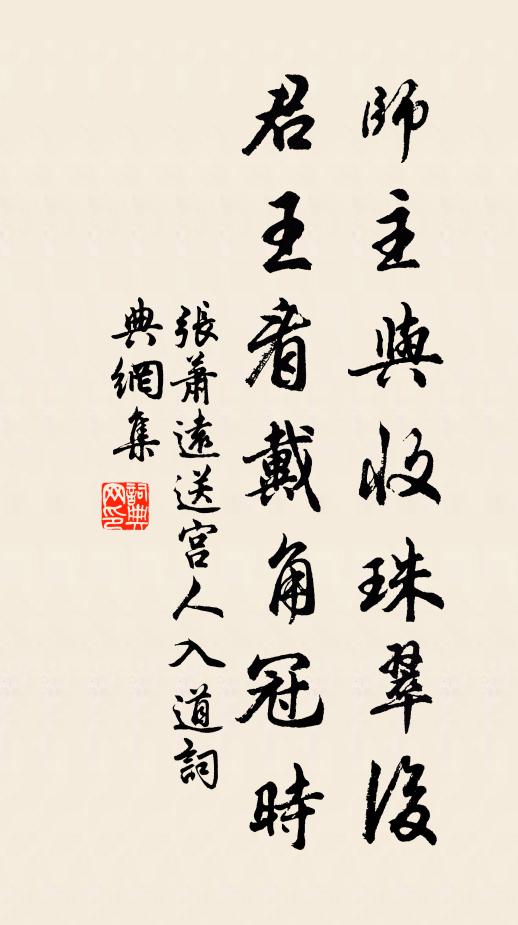 師主與收珠翠後
君王看戴角冠時
張蕭遠送宮人入道詞
典網集
詞典网印